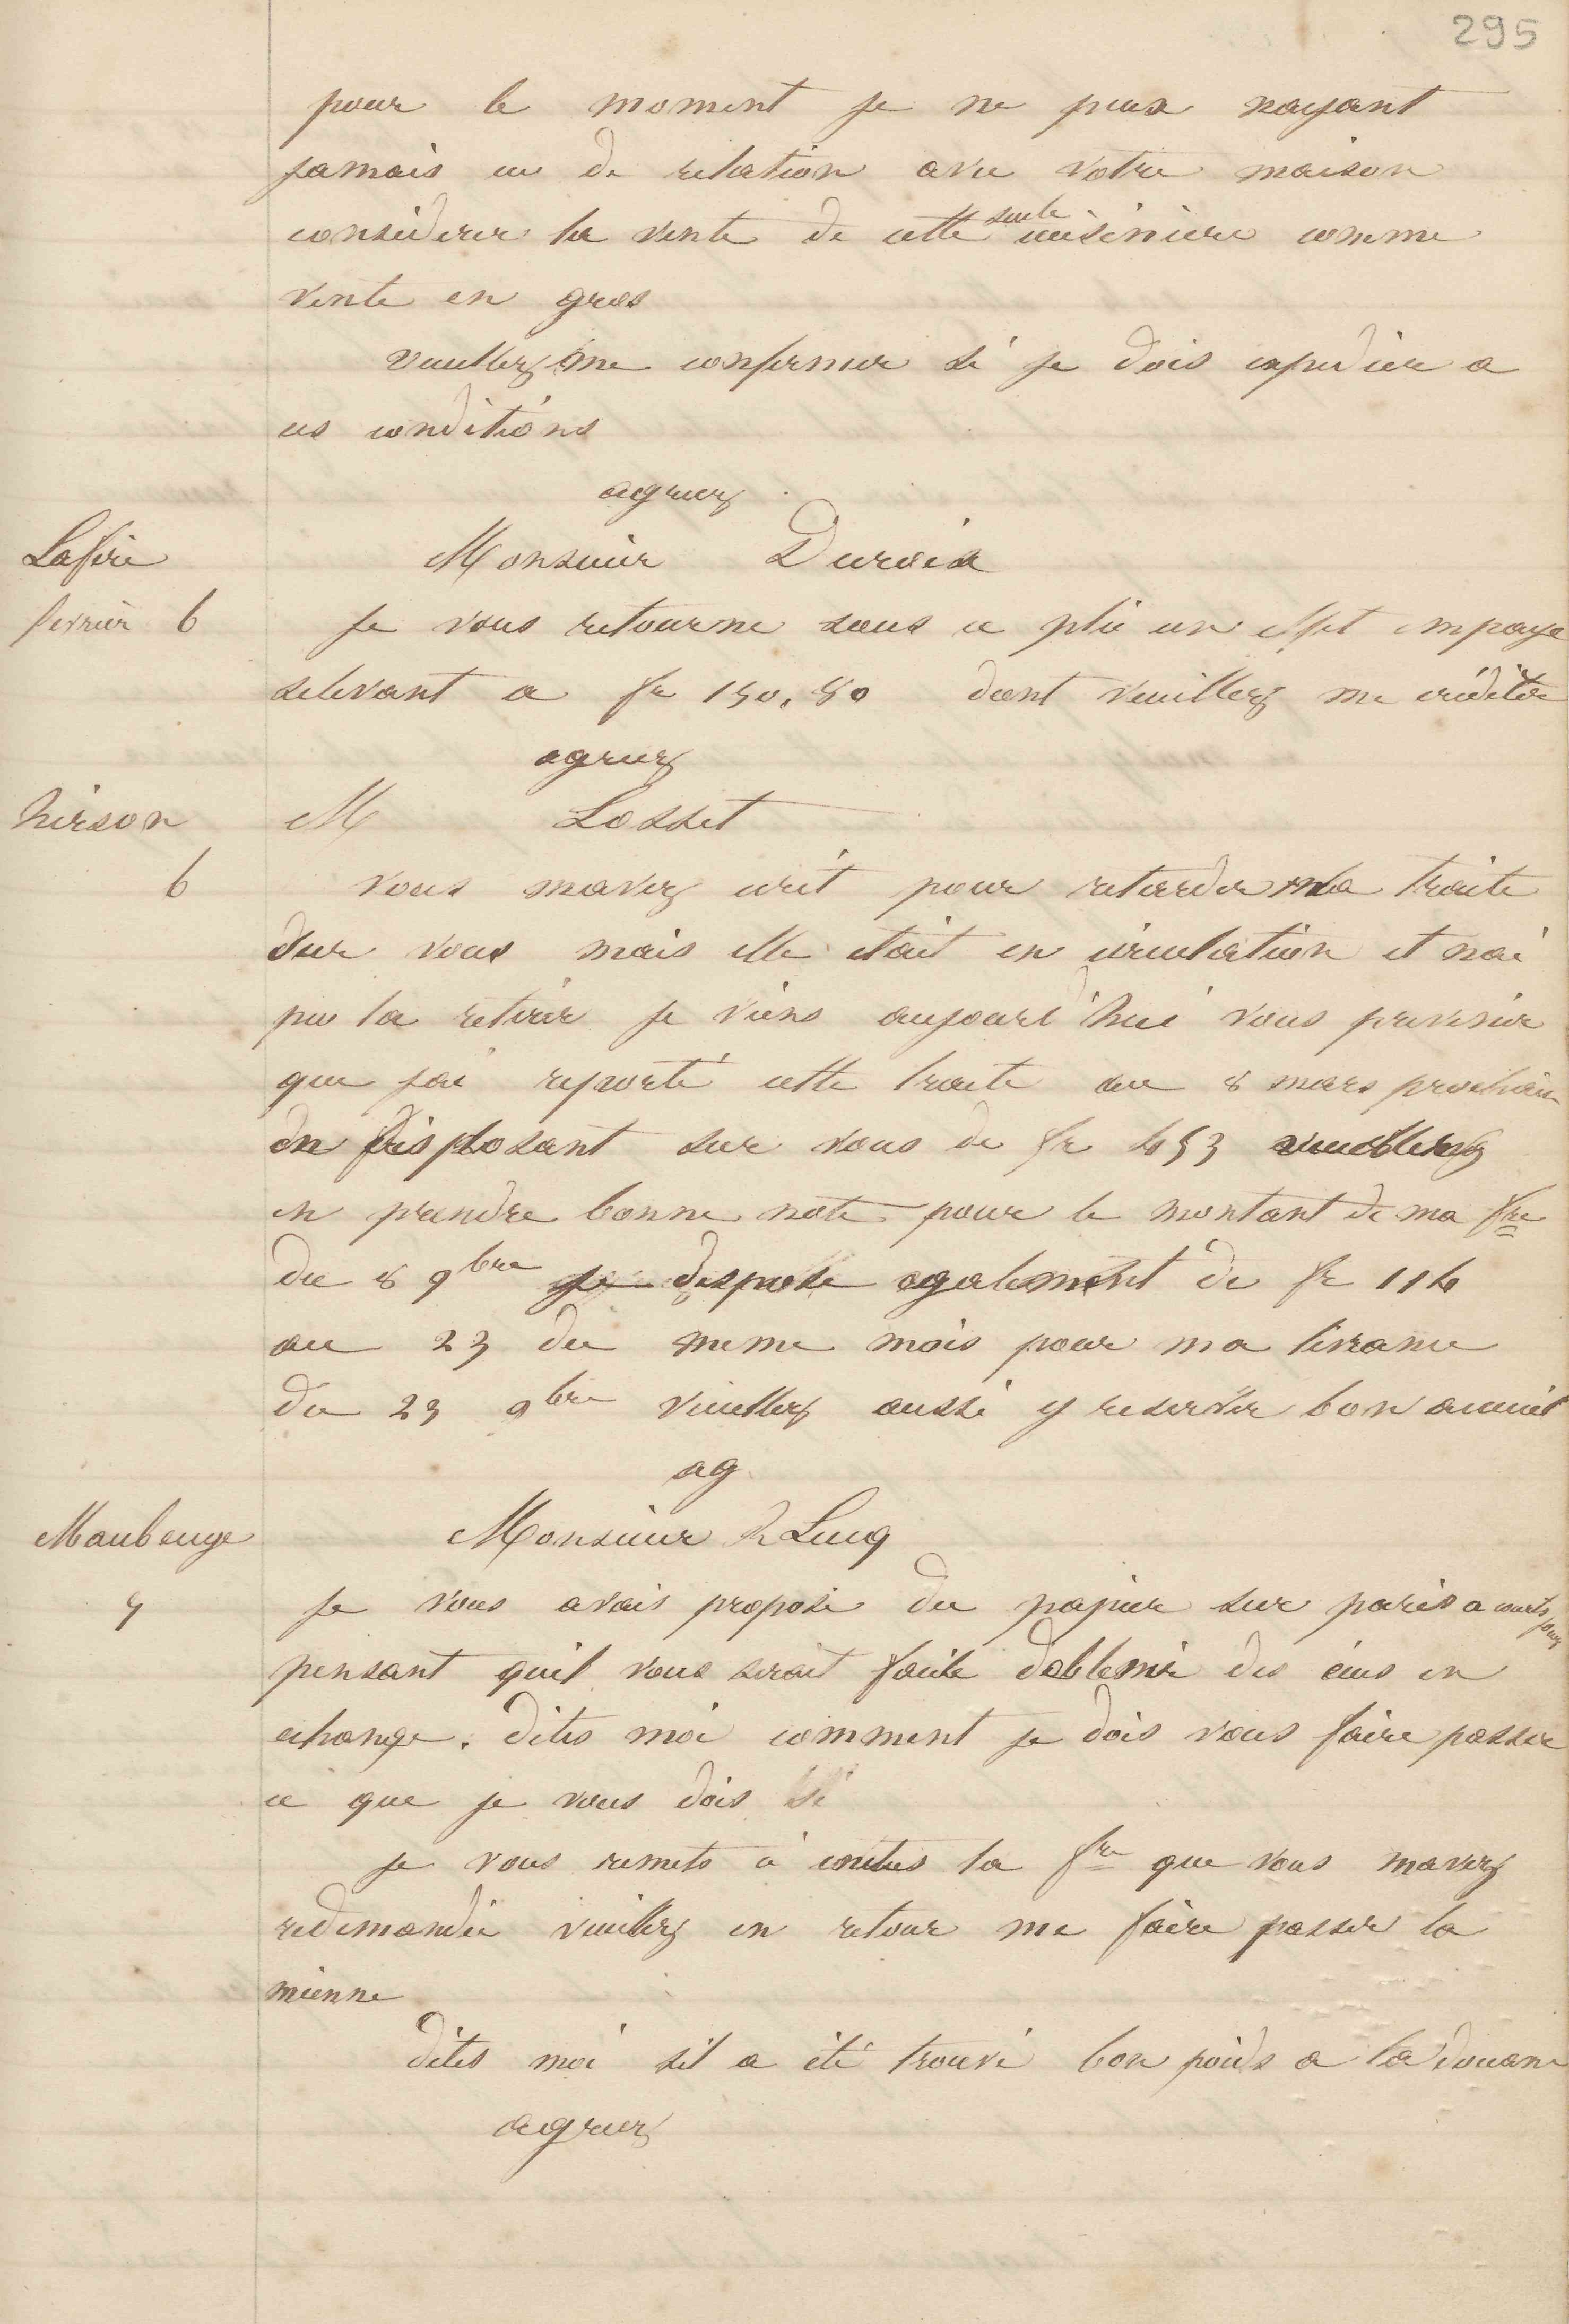 295
pour le moment je ne peux nayant
jamais eu de relation avec votre maison
considerer la vente de cette seule cuisiniere comme
vente en gros
veuillez me confirmer si je dois expedier a
ces conditions
agreez
Lafère
Monsieur Duroia
fevrier 6
Je vous retourne sous ce plie un effet impaye
selevant a fr 150,80 dont veuillez me créditer
agreez
hirson
M Losset
6
vous mavez ecrit pour retarder ma traite
sur vous mais elle etait en circulation et nai
pu la retirer je viens aujourd'hui vous prevenir
que jai reporté cette traite au 8 mars prochain
en disposant sur vous de fr 453 veuillez
en prendre bonne note pour le montant de ma fre
du 8 9bre je dispose egalement de fr 114
au 23 du meme mois pour ma livrance
du 23 9bre veuillez aussi y reserver bon acceuil
ag
Maubeuge
Monsieur h Lucq
7
Je vous avais propose du papier sur paris a courts jours
pensant quil vous serait facile dobtenir des écus en
echange. dites moi comment je dois vous faire passer
ce que je vous dois si
je vous remets ci inclus la fre que vous mavez
redemandée veuillez en retour me faire passer la
mienne
dites moi sil a été trouvé bon poids a la douane
agreez